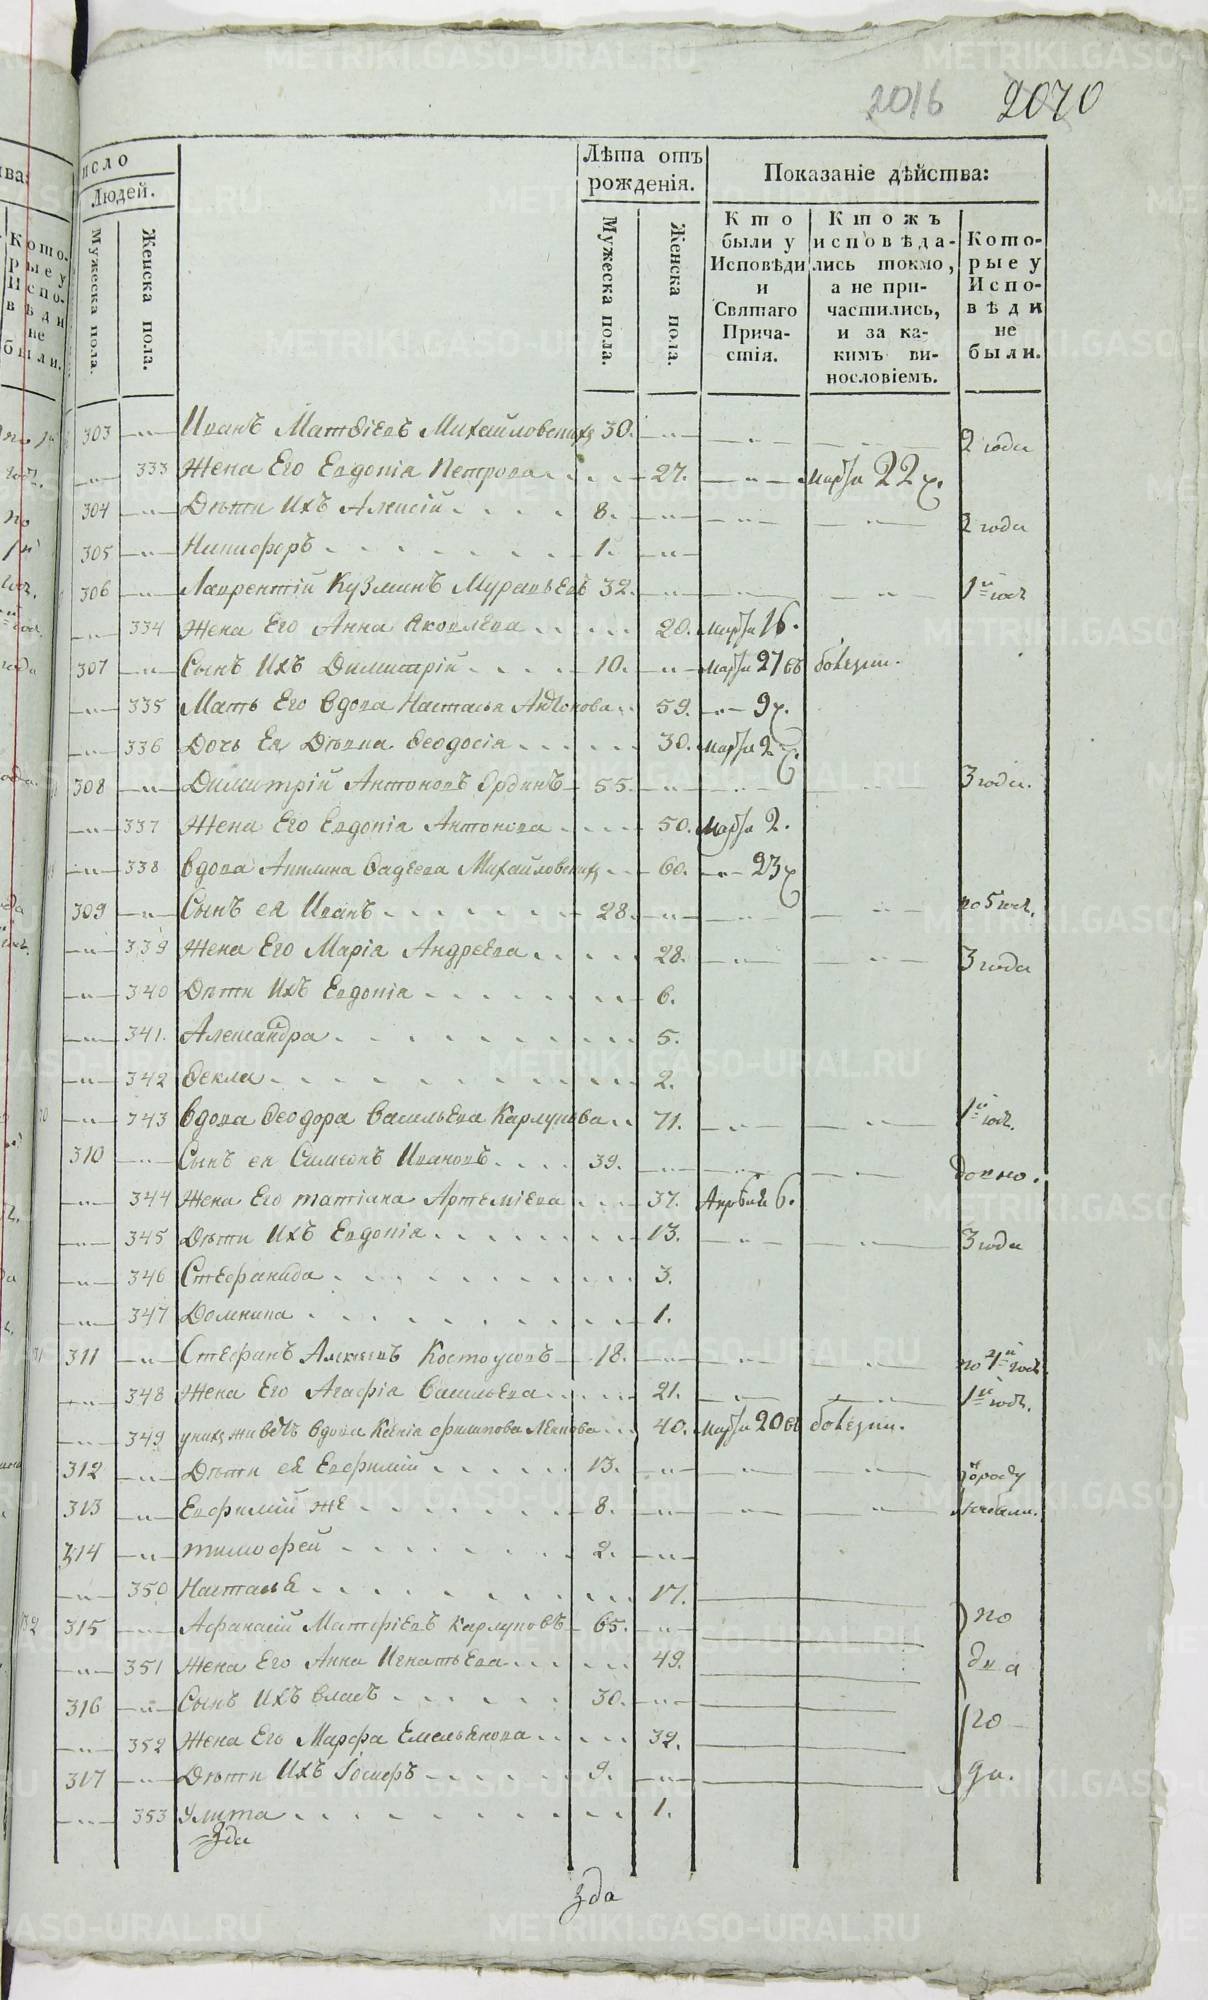 2016 2070
исло
Людей.
Мужеска пола.
Женска пола.
Лѣта отъ рожденія.
Мужеска пола.
Женска пола.
Показаніе дѣйства:
Кто были у Исповѣди и Святаго Причастія.
Ктожъ исповѣдались токмо, а не причастились, и за какимъ винословіемъ.
Которые у Исповѣди не были.
303 Иванъ Матѳіевъ Михайловских 30. 2 года
333 Жена Его Евдокія Петрова 27. Марта 22
304 Дѣти Ихъ Алексій 8. 2 года
305 Никифоръ 1.
306 Лаврентій Кузминъ Муравьевъ 32. 1й годъ
334 Жена Его Анна Яковлева 20. Марта 16.
307 Сынъ Ихъ Димитрій 10. Марта 27 въ болезни.
335 Мать Его Вдова Настасья Антонова 59. 9
336 Дочь Ея Дѣвка Ѳеодосія 30. Марта 2
308 Димитрій Антоновъ Ярдинъ 55. 3 года.
337 Жена Его Евдокія Антонова 50. Марта 2.
338 Вдова Акилина Ѳадеева Михайловских 60. 23
309 Сынъ ея Иванъ 28. по 5 год.
339 Жена Его Марія Андреева 28. 3 года
340 Дѣти Ихъ Евдокія 6.
341. Александра 5.
342 Ѳекла 2.
343 Вдова Ѳеодора Васильева Карлукова 71. 1й годъ.
310 Сынъ ея Симеонъ Ивановъ 39. давно.
344 Жена Его Татіана Артеміева 37. Апреля 6.
345 Дѣти Ихъ Евдокія 13. 3 года
346 Стефанида 3.
347 Домника 1.
311 Стефанъ Алексеевъ Костоусовъ 18. по 4й годъ
348 Жена Его Агафія Васильева 21. 1й годъ.
349 у них живетъ вдова Ксенія Филипова 40. Марта 20 въ болезни.
312 Дѣти ея Евфимій 13. отроду
313 Евфимій же 8. не были.
314 Тимофей 2.
350 Настасья 17.
315 Афанасій Матфіевъ Карлуковъ 65. по
351 Жена Его Анна Игнатьева 49. два
316 Сынъ Ихъ Власъ 30.
352 Жена Его Марфа Емельянова 32. го
317 Дѣти Ихъ Іосифъ 9. да.
353 Улита 1.
METRIKI.GASO-URAL.RU